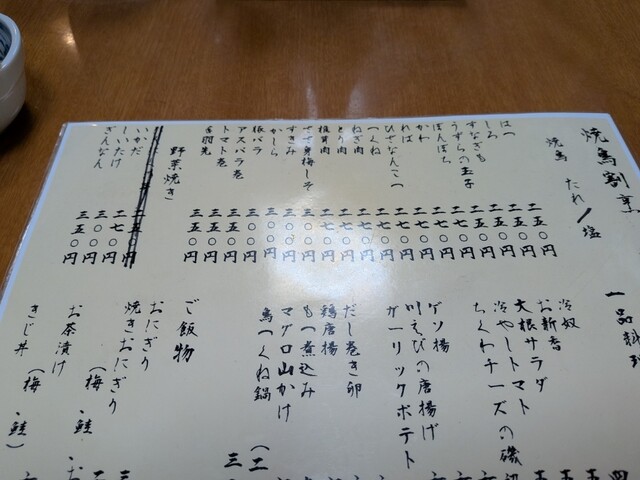 焼鳥割烹
焼鳥 たれ/塩
はつ 二五〇円
しろ 二五〇円
すなぎも 二五〇円
うずらの玉子 二五〇円
ぼんぼち 二五〇円
かわ 二七〇円
ればー 二七〇円
ひざなんこつ 二七〇円
つくね 二七〇円
ねぎ肉 二七〇円
とり肉 二七〇円
椎茸肉 二七〇円
ささ身梅しそ 三〇〇円
すきみ 三〇〇円
かしら 三〇〇円
豚バラ 三〇〇円
アスパラ巻 三五〇円
トマト巻 三五〇円
三五〇円
野菜焼き
いかだ 二七〇円
しいたけ 二七〇円
ぎんなん 三五〇円
一品料理
冷奴
お新香
大根サラダ
冷やしトマト
ちくわチーズの磯辺
ゲソ揚
川えびの唐揚げ
ガーリックポテト
だし巻き卵
鶏唐揚
もつ煮込み
マグロ山かけ
鳥つくね鍋 (二
ご飯物
おにぎり
焼きおにぎり
(梅・鮭・お
お茶漬け
(梅・鮭)
きじ丼